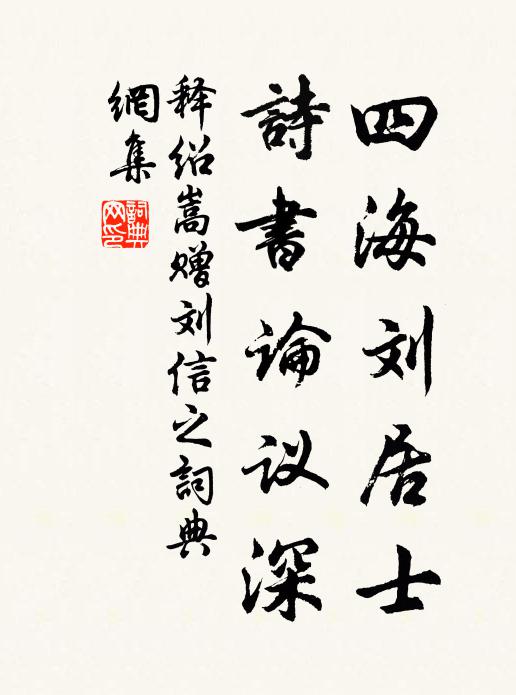 四海刘居士
詩書論议深
释绍嵩赠刘信之詞典
網集
詞典
网印